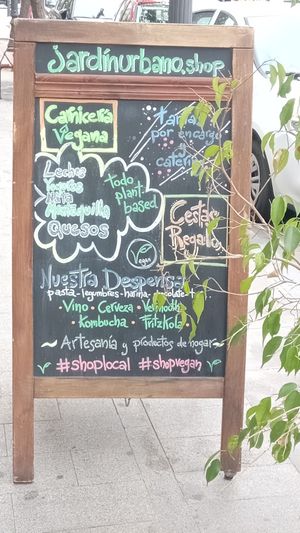 Jardínurbano.shop
Carnicería
Vegana
Tartas
por encargo
y
catering
Leches
Yogures
Nata
Mantequilla
Quesos
todo
plant-
based
Cestas
Regalo
Vegan
Nuestra Despensa
pasta-legumbres-harina-chocolate-t
Vino · Cerveza · Vermouth
Kombucha · Fritzkola
~ Artesanía y productos de hogar ~
#shoplocal #shopvegan